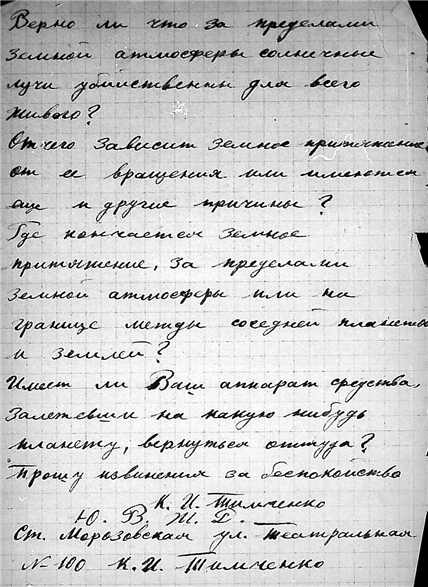 Верно ли что за пределами
земной атмосферы солнечные
лучи убийственны для всего
живого?
Отчего зависит земное притяжение
от ее вращения или имеются
еще и другие причины?
Где кончается земное
притяжение, за пределами
земной атмосферы или на
границе между соседней планеты
и землей?
Имеет ли Ваш аппарат средства,
залетевши на какую нибудь
планету, вернуться оттуда?
Прошу извинения за беспокойство
К. И. Тимченко
Ю. В. Ж. Д.
Ст. Морозовская ул. Театральная
№ 100 К. И. Тимченко